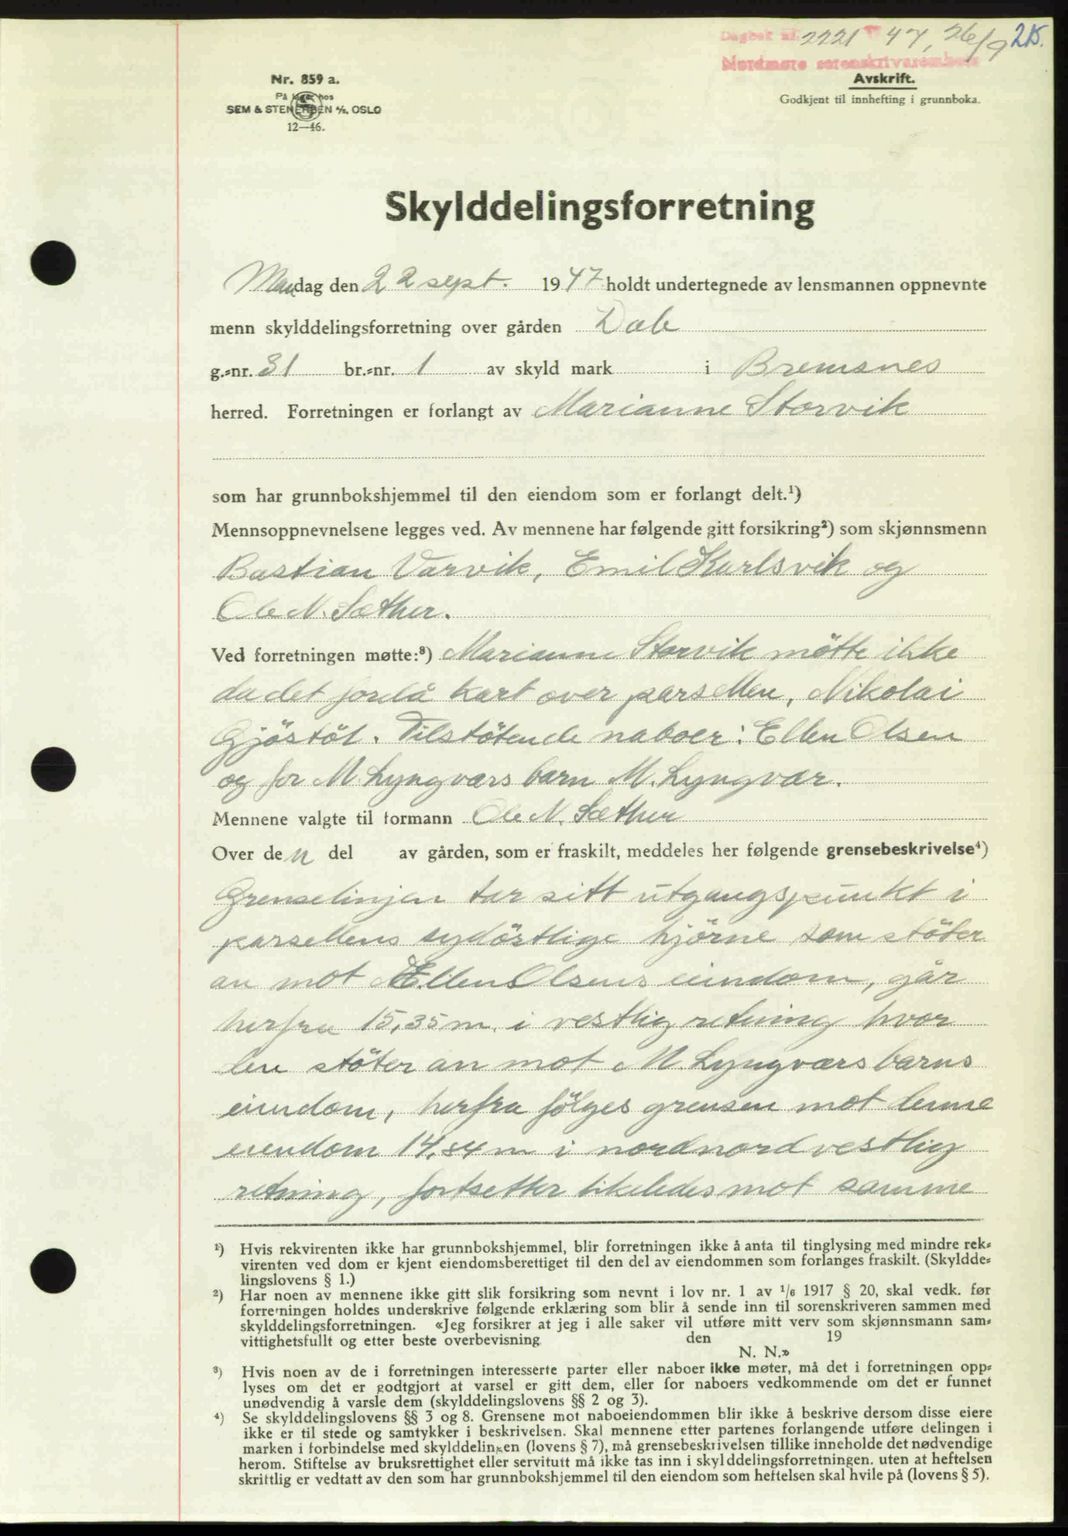 Dagbok nr. 2221 47, 26/9 215.
Nordmøre sorenskriverembete
Nr. 859 a.
På lager hos
SEM & STENERSEN A/S, OSLO
12—46.
Avskrift.
Godkjent til innhefting i grunnboka.
Skylddelingsforretning
Mandag den 22 sept. 1947 holdt undertegnede av lensmannen oppnevnte
menn skylddelingsforretning over gården Dale
g.=nr. 31 br.=nr. 1 av skyld mark i Bremsnes
herred. Forretningen er forlangt av Marianne Storvik
som har grunnbokshjemmel til den eiendom som er forlangt delt.¹)
Mennsoppnevnelsene legges ved. Av mennene har følgende gitt forsikring²) som skjønnsmenn
Bastian Varvik, Emil Karlsvik og
Ole N. Sæther.
Ved forretningen møtte:³) Marianne Storvik møtte ikke
da det forelå kart over parsellen, Nikolai
Gjöstöl. Tilstötende naboer: Ellen Olsen
og for M. Lyngværs barn M. Lyngvær.
Mennene valgte til formann Ole N. Sæther
Over den del av gården, som er fraskilt, meddeles her følgende grensebeskrivelse⁴)
Grenselinjen tar sitt utgangspunkt i
parsellens sydöstlige hjörne som stöter
an mot Ellen Olsens eiendom, går
herfra 15,35 m. i vestlig retning hvor
den stöter an mot M. Lyngværs barns
eiendom, herfra fölges grensen mot denne
eiendom 14,84 m i nordnordvestlig
retning, fortsetter likeledes mot samme
¹) Hvis rekvirenten ikke har grunnbokshjemmel, blir forretningen ikke å anta til tinglysing med mindre rek=
virenten ved dom er kjent eiendomsberettiget til den del av eiendommen som forlanges fraskilt. (Skyldde=
lingslovens § 1.)
²) Har noen av mennene ikke gitt slik forsikring som nevnt i lov nr. 1 av 1/6 1917 § 20, skal vedk. før
forretningen holdes underskrive følgende erklæring som blir å sende inn til sorenskriveren sammen med
skylddelingsforretningen. «Jeg forsikrer at jeg i alle saker vil utføre mitt verv som skjønnsmann sam=
vittighetsfullt og etter beste overbevisning den 19
N. N.»
³) Hvis noen av de i forretningen interesserte parter eller naboer ikke møter, må det i forretningen opp=
lyses om det er godtgjort at varsel er gitt dem, eller for naboers vedkommende om det er funnet
unødvendig å varsle dem (skylddelingslovens §§ 2 og 3).
⁴) Se skylddelingslovens §§ 3 og 8. Grensene mot naboeiendommen blir ikke å beskrive dersom disse eiere
ikke er til stede og samtykker i beskrivelsen. Skal mennene etter partenes forlangende utføre delingen i
marken i forbindelse med skylddelingen (lovens § 7), må grensebeskrivelsen tillike inneholde det nødvendige
herom. Stiftelse av bruksrettighet eller servitutt må ikke tas inn i skylddelingsforretningen. uten at heftelsen
skriftlig er vedtatt av den som har grunnbokshjemmel til den eiendom som heftelsen skal hvile på (lovens § 5).